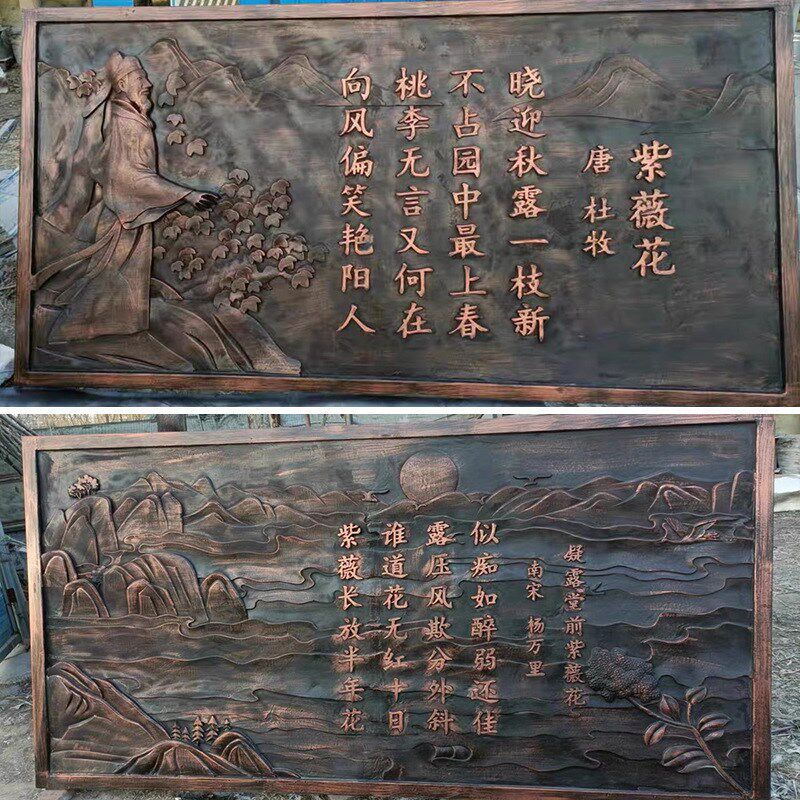 紫薇花
唐 杜牧
晓迎秋露一枝新
不占园中最上春
桃李无言又何在
向风偏笑艳阳人
凝露堂前紫薇花
南宋 杨万里
似痴如醉弱还佳
露压风欺分外斜
谁道花无红十日
紫薇长放半年花